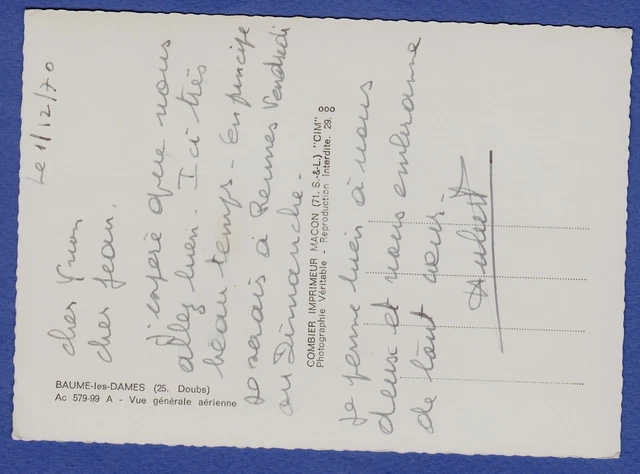 Le 1/12/70
cher Yvon
cher Jean,
J'espère que vous
allez bien - Ici très
beau temps - En principe
Je serais à Rennes Vendredi
ou Dimanche -
Je pense bien à vous
deux et vous embrasse
de tout cœur -
Hubert
COMBIER IMPRIMEUR MACON (71. S.-&-L.) "CIM"
Photographie Véritable - Reproduction Interdite. 29.
BAUME-les-DAMES (25. Doubs)
Ac 579-99 A - Vue générale aérienne